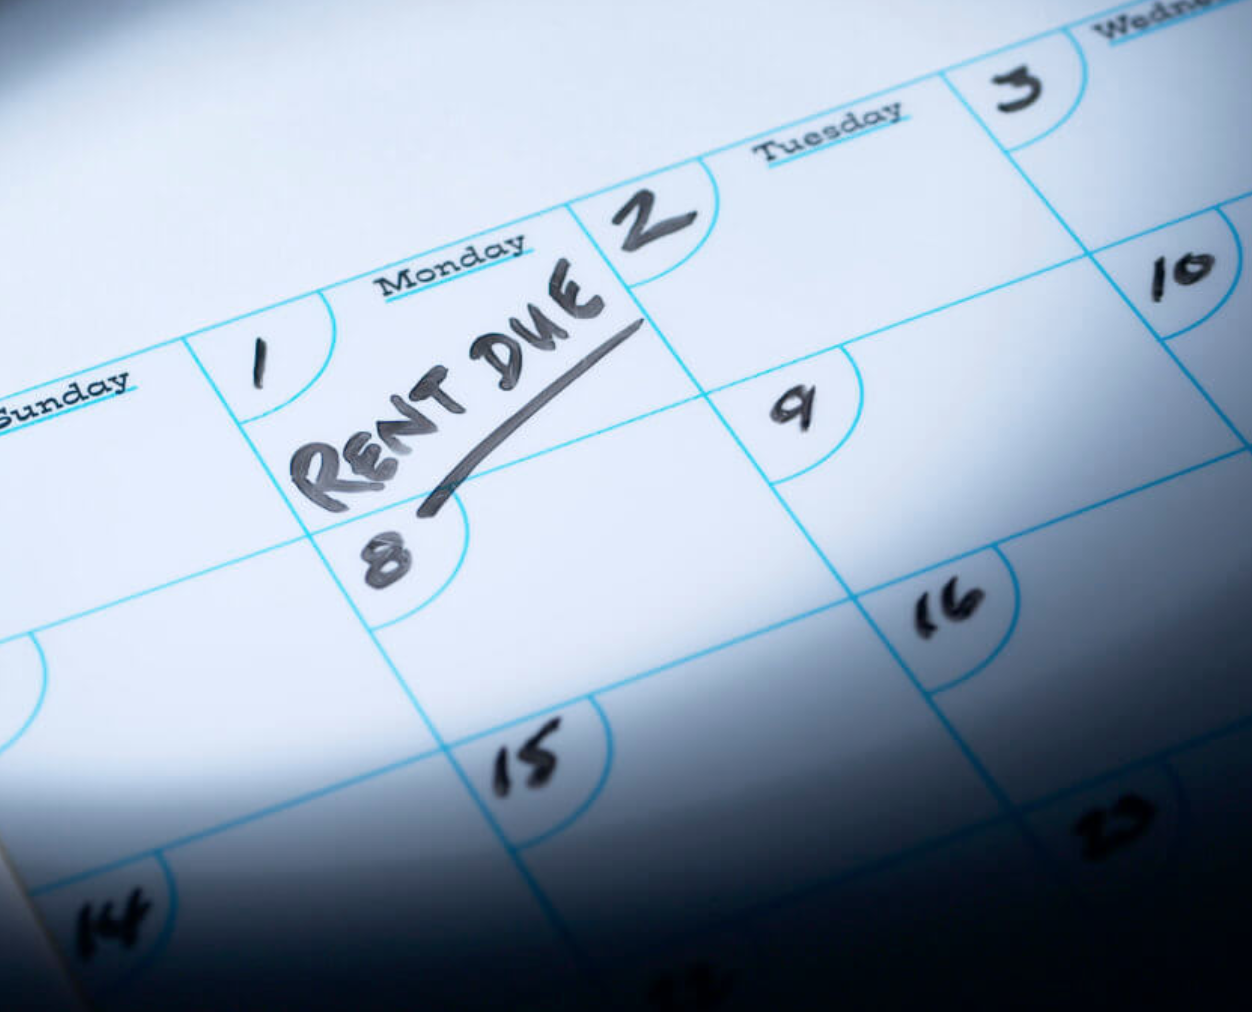 Sunday
Monday
Tuesday
1
2
3
RENT DUE
8
9
10
14
15
16
23